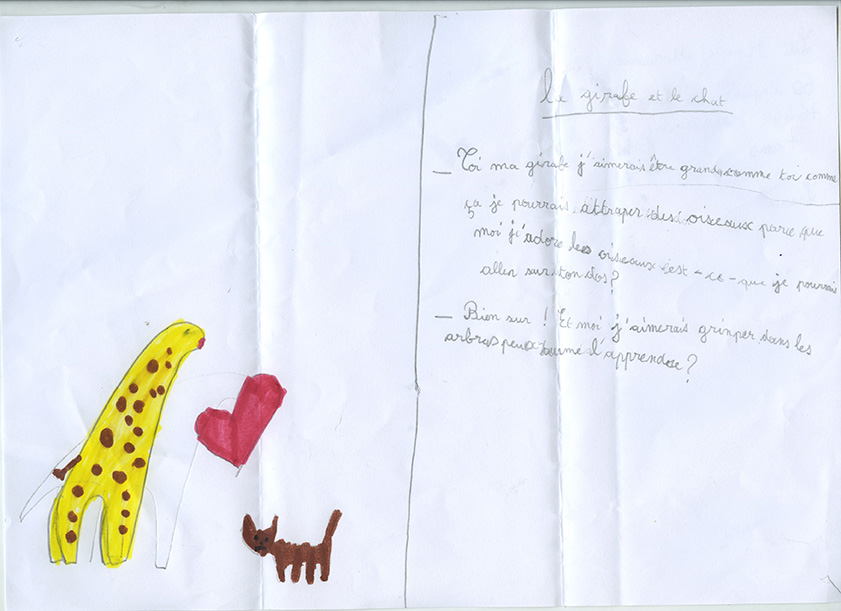 La girafe et le chat
_ Toi ma girafe j'aimerais être grand comme toi comme
ça je pourrais attraper des oiseaux parce que
moi j'adore les oiseaux est-ce-que je pourrais
aller sur ton dos?
_ Bien sur ! Et moi j'aimerais grinper dans les
arbres peux tu me l'apprendre?